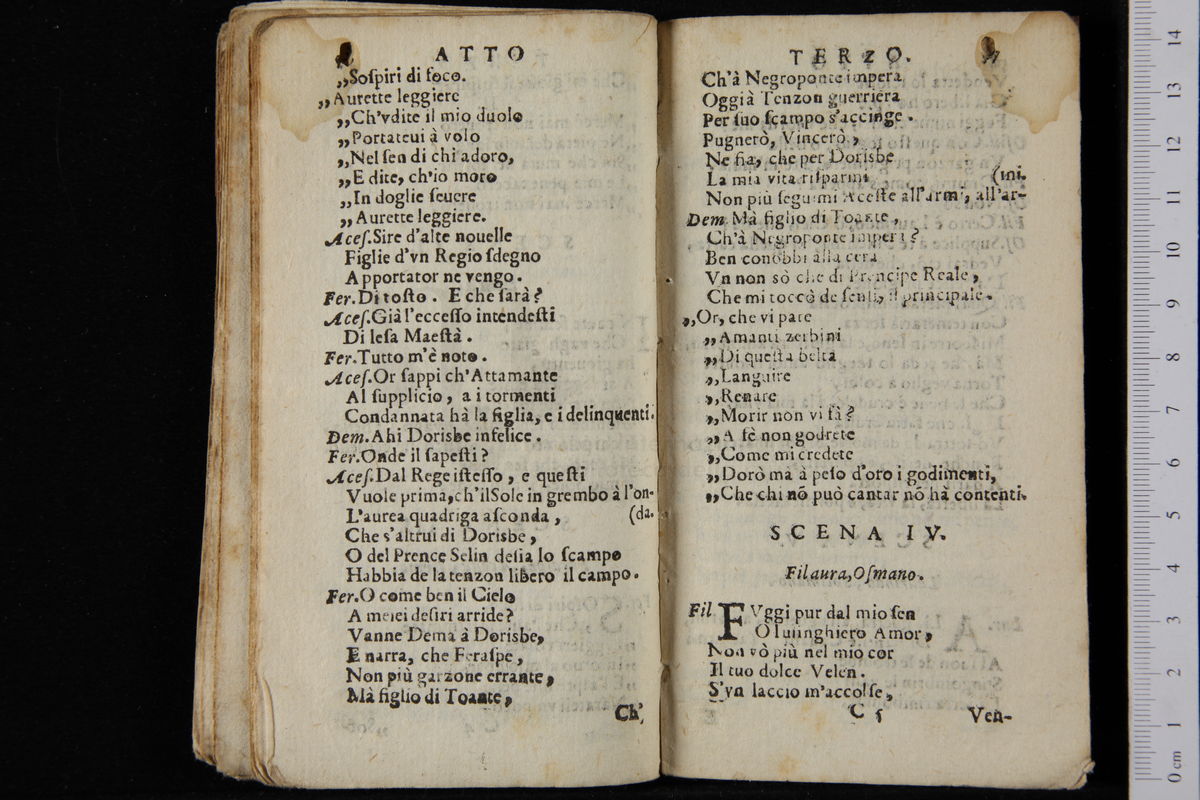 ATTO
„Soſpiri di foco.
„Aurette leggiere
„Ch'vdite il mio duolo
„Portateui à volo
„Nel ſen di chi adoro,
„E dite, ch'io moro
„In doglie ſeuere
„Aurette leggiere.
Aceſ. Sire d'alte nouelle
Figlie d'vn Regio ſdegno
Apportator ne vengo.
Fer. Di toſto. E che ſarà?
Aceſ. Già l'ecceſſo intendeſti
Di leſa Maeſtà.
Fer. Tutto m'è noto.
Aceſ. Or ſappi ch'Attamante
Al ſupplicio, a i tormenti
Condannata hà la figlia, e i delinquenti.
Dem. Ahi Dorisbe infelice.
Fer. Onde il ſapeſti?
Aceſ. Dal Rege iſteſſo, e queſti
Vuole prima, ch'il Sole in grembo à l'on-
L'aurea quadriga aſconda, (da.
Che s'altrui di Dorisbe,
O del Prence Selin deſia lo ſcampo
Habbia de la tenzon libero il campo.
Fer. O come ben il Cielo
A meiei deſiri arride?
Vanne Dema à Dorisbe,
E narra, che Feraſpe,
Non più garzone errante,
Mà figlio di Toante,
Ch'
TERZO.
Ch'à Negroponte impera
Oggià Tenzon guerriera
Per ſuo ſcampo s'accinge.
Pugnerò, Vincerò,
Ne fia, che per Dorisbe
La mia vita riſparmi (mi.
Non più ſeguimi Aceſte all'armi, all'ar-
Dem. Mà figlio di Toante,
Ch'à Negroponte imperi?
Ben conobbi alla cera
Vn non sò che di Prencipe Reale,
Che mi toccò de ſenſi, il principale.
„Or, che vi pare
„Amanti zerbini
„Di queſta beltà
„Languire
„Penare
„Morir non vi fà?
„A fè non godrete
„Come mi credete
„Dorò ma à peſo d'oro i godimenti,
„Che chi nõ può cantar nõ hà contenti.
SCENA IV.
Filaura, Oſmano.
Fil FVggi pur dal mio ſen
O luſinghiero Amor,
Non vò più nel mio cor
Il tuo dolce Velen.
S'vn laccio m'accolſe,
C 5 Ven-